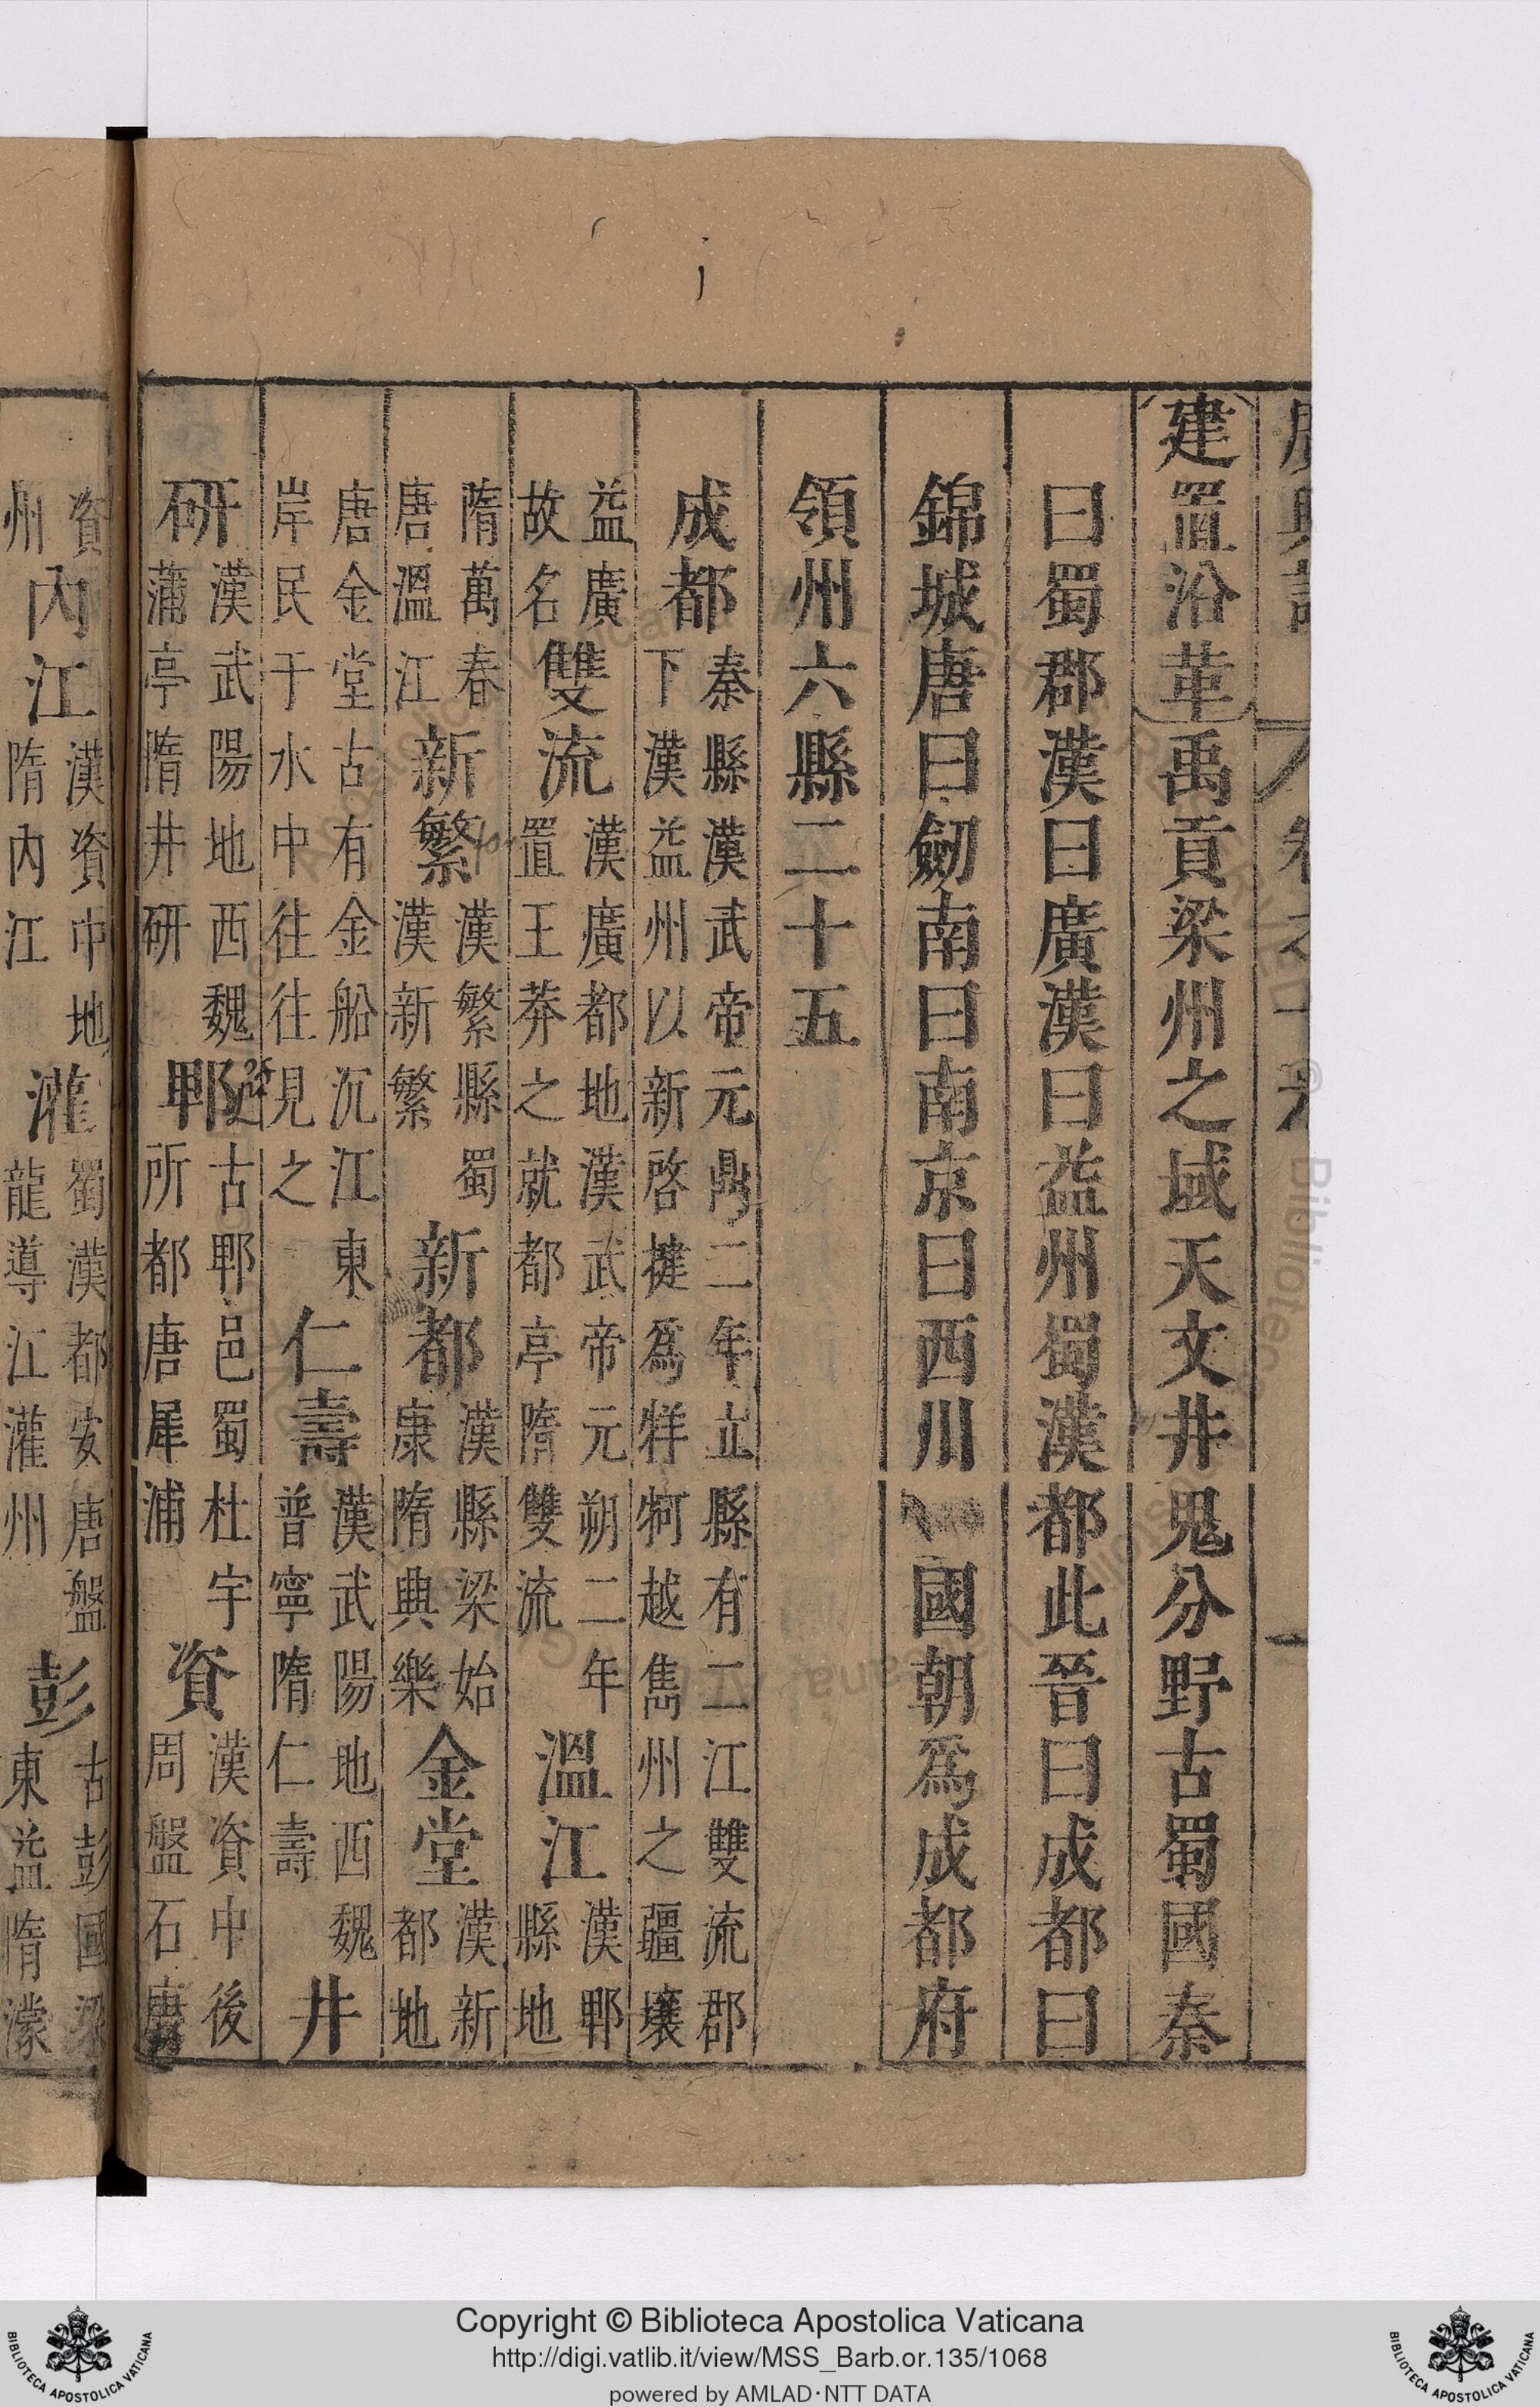 建置沿革禹貢梁州之域天文井鬼分野古蜀國秦
曰蜀郡漢曰廣漢曰益州蜀漢都此晉曰成都曰
錦城唐曰劒南曰南京曰西川國朝爲成都府
領州六縣二十五
成都秦縣漢武帝元鼎二年立縣有二江雙流郡
下漢益州以新啓犍爲牂牁越雋州之疆壤
益廣
故名雙流漢廣都地漢武帝元朔二年
置王莽之就都亭隋雙流溫江漢郫
縣地
隋萬春
唐溫江新繁漢繁縣蜀
漢新繁新都漢縣梁始
康隋興樂金堂漢新
都地
唐金堂古有金船沉江東
岸民于水中往往見之仁壽漢武陽地西魏
普寧隋仁壽井
研漢武陽地西魏
蒲亭隋井研郫古郫邑蜀杜宇
所都唐犀浦資漢資中後
周盤石唐
資
州內江漢資中地
隋內江灌蜀漢都安唐盤
龍導江灌州彭古彭國梁
東益隋濛
Copyright © Biblioteca Apostolica Vaticana
http://digi.vatlib.it/view/MSS_Barb.or.135/1068
powered by AMLAD·NTT DATA
BIBLIOTECA APOSTOLICA VATICANA
BIBLIOTECA APOSTOLICA VATICANA